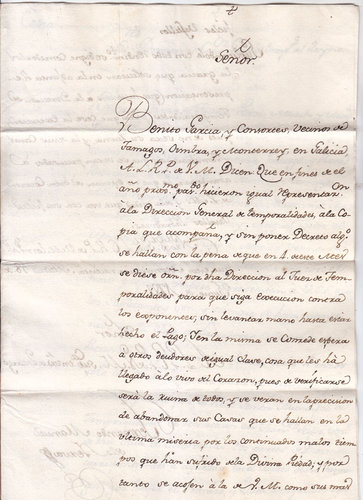 Señor.
Benito Garcia, y Consortes, Vecinos de
Tamagos, Oimbra, y Monterrey, en Galicia
A. L. R. P. de V. M. Dicen Que en fines de el
año prox.mo pas.do hicieron igual representaz.on
à la Direccion General de temporalidades, à la Co
pia que acompaña, y sin poner Decreto alg.o
se hallan con la pena de que en 4. de este
se diese orn. por dha Direccion al Juez de Tem
poralidades para que siga execucion contra
los exponentes, sin levantar mano hasta estar
hecho el Pago; Y en la misma se Concede espera
à otros deudores de igual clase, cosa que les hà
llegado àlo vivo del Corazon, pues de verificarse
serà la ruina de todos, y se veràn en la precision
de abandonar sus Casas que se hallan en la
ultima miseria por los continuados malos tiem
pos que han sufrido de la Divina Piedad; y por
tanto se acojen à la de V. M. como sus mas